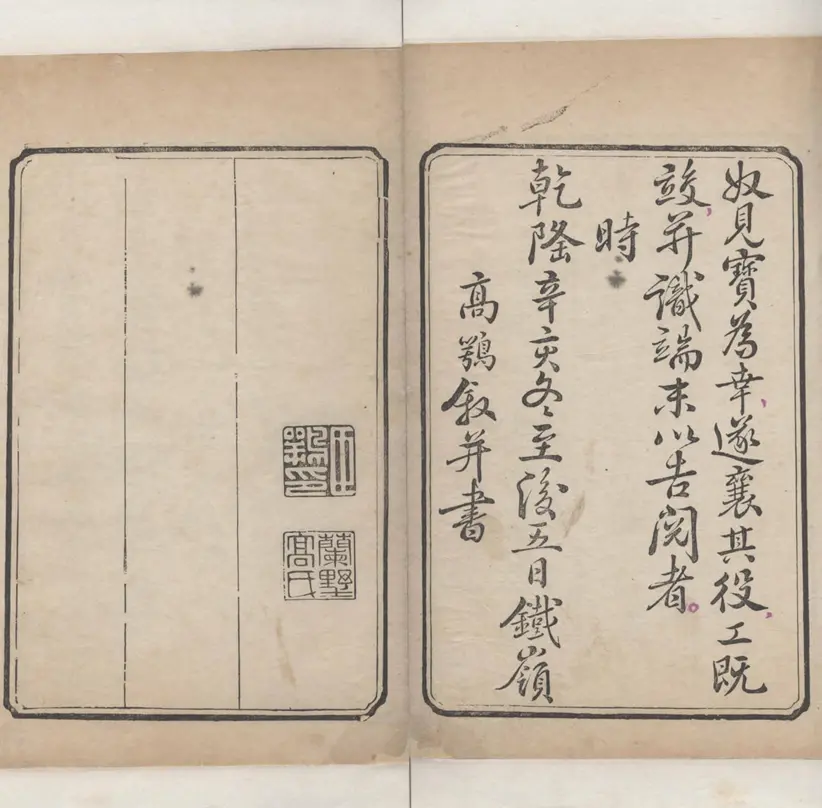 奴見寶為幸遂襄其役工既
竣并識端末以告閱者
時
乾隆辛亥冬至後五日鐵嶺
高鶚叙并書
臣鶚印
蘭墅高氏